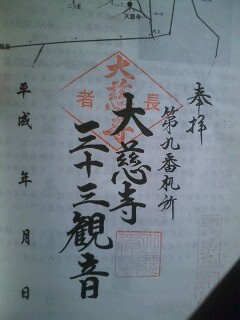 大慈寺
奉拝
第九番札所
大慈寺
三十三観音
長者
大慈寺
平成 年 月 日